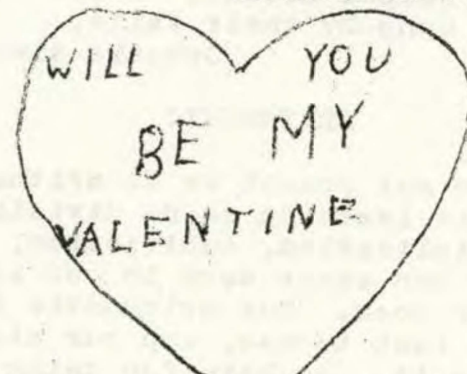 WILL YOU
BE MY
VALENTINE